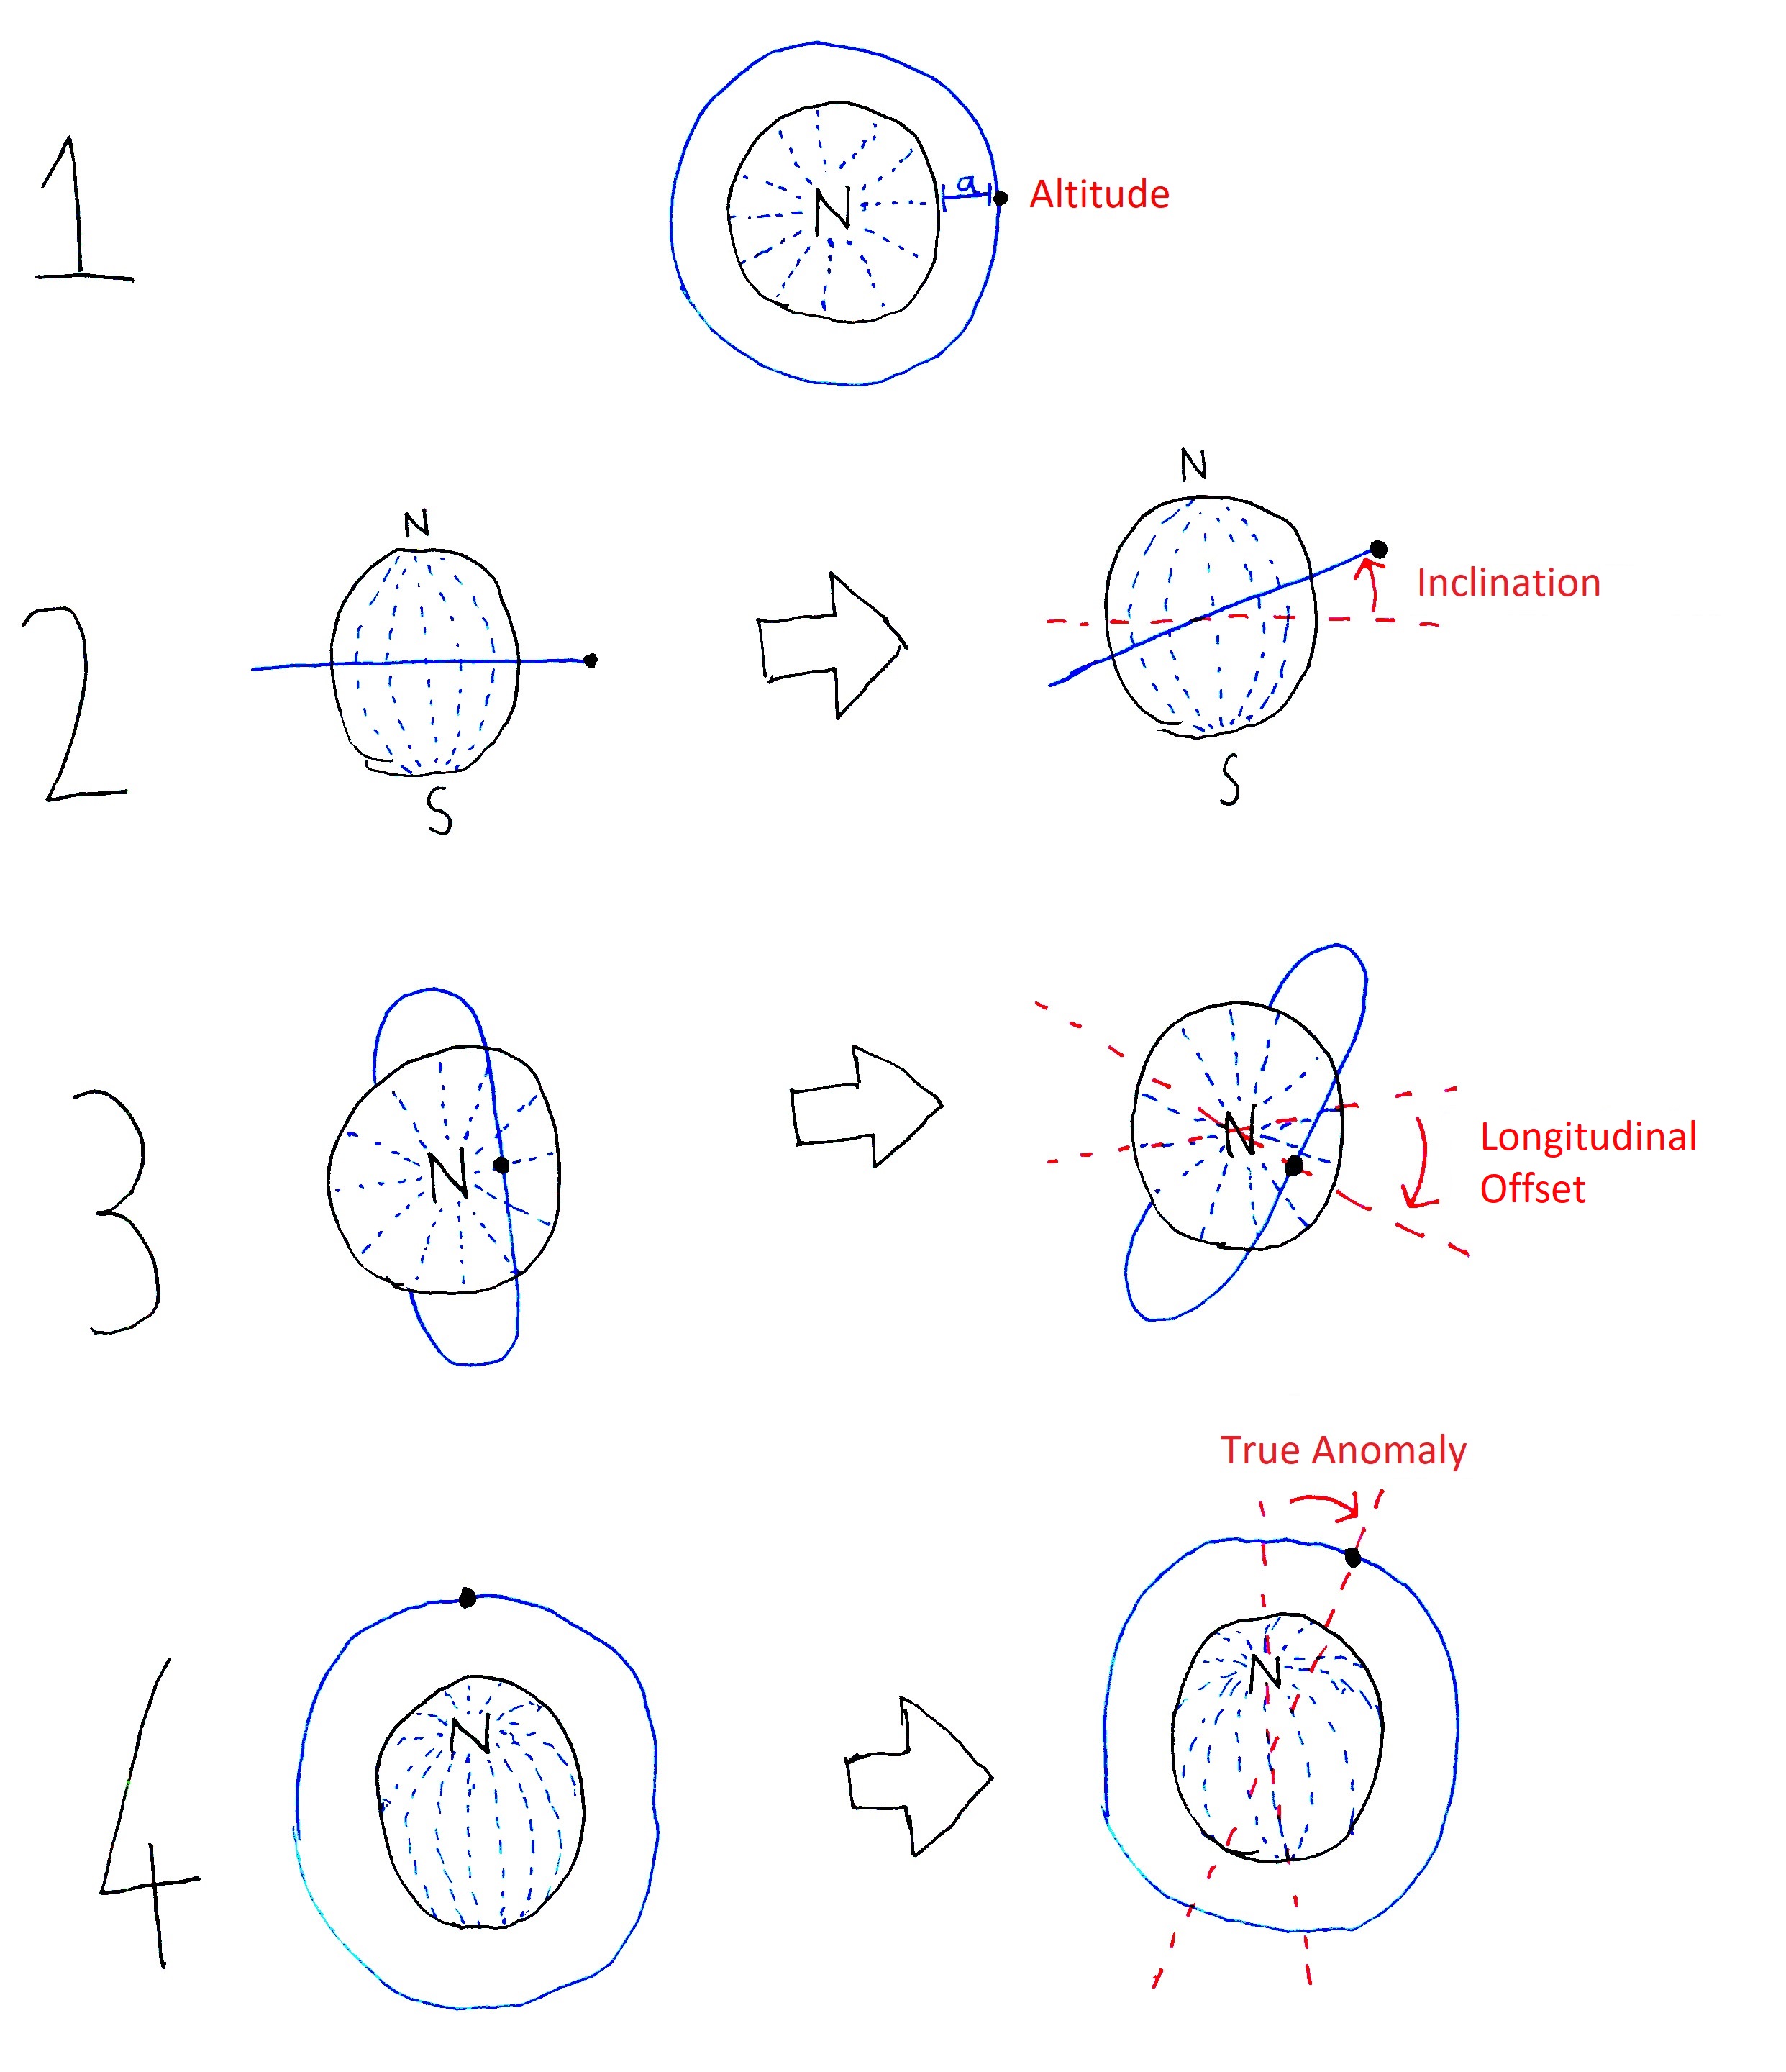 1
N
a
Altitude
2
N
S
N
Inclination
S
3
N
N
Longitudinal
Offset
4
N
True Anomaly
N